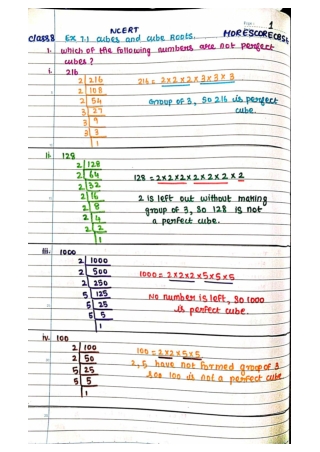 Page: 1
NCERT
Class 8 Ex 7.1 cubes and cube Roots. MORESCORECBSE
1. which of the following numbers are not perfect
cubes?
i. 216
2 216
2 108
2 54
3 27
3 9
3 3
1
216 = 2×2×2×3×3×3
Group of 3, so 216 is perfect
cube.
ii. 128
2 128
2 64
2 32
2 16
2 8
2 4
2 2
1
128 = 2×2×2×2×2×2×2
2 is left out without making
group of 3, So 128 is not
a perfect cube.
iii. 1000
2 1000
2 500
2 250
5 125
5 25
5 5
1
1000 = 2×2×2×5×5×5
No number is left, so 1000
is perfect cube.
iv. 100
2 100
2 50
5 25
5 5
1
100 = 2×2×5×5
2,5 have not formed group of 3
so 100 is not a perfect cube